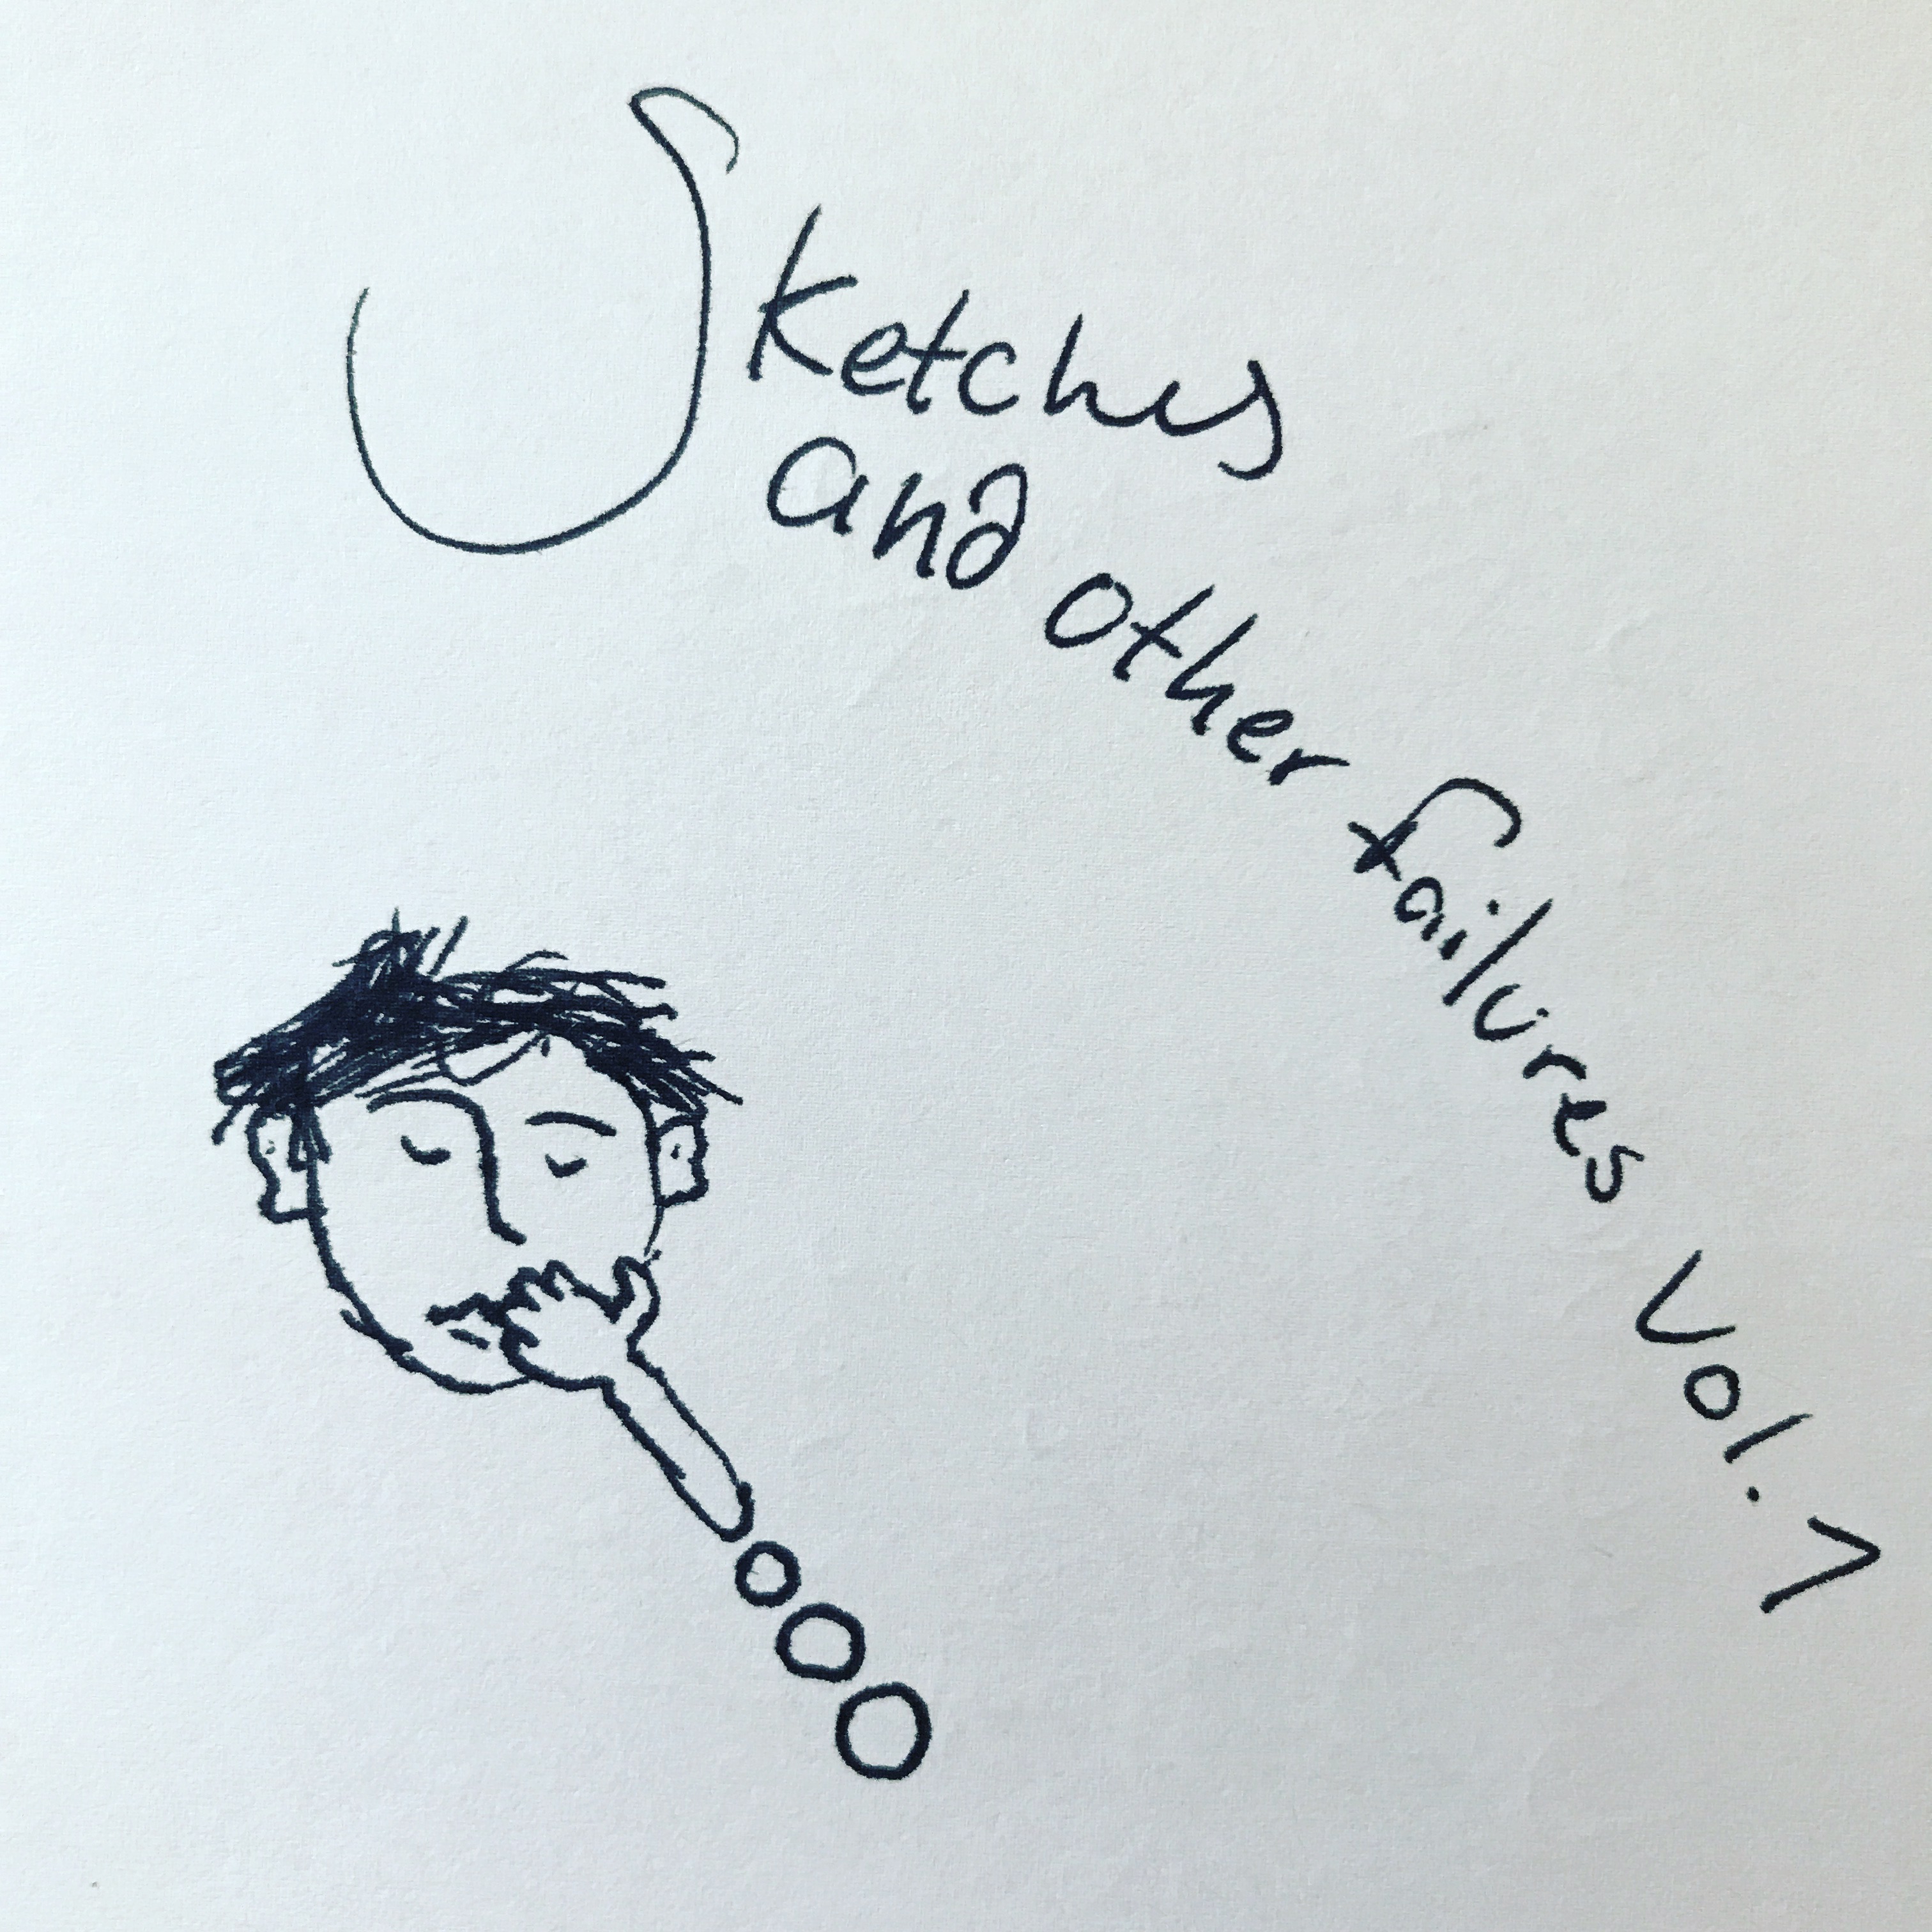 Sketches
and other failures Vol. 1